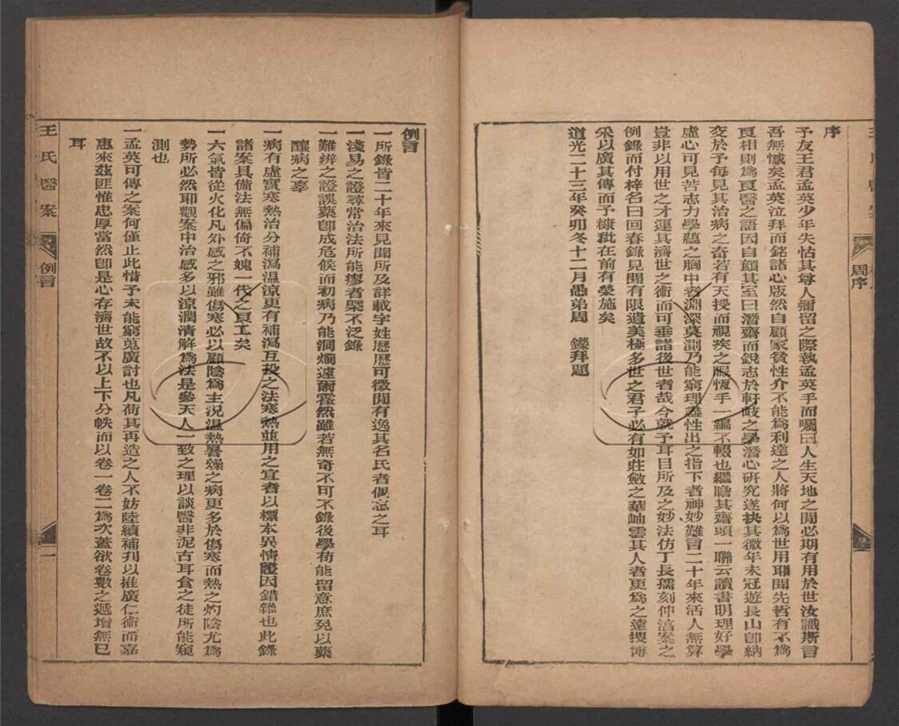 序
予友王君孟英少年失怙其尊人彌留之際執孟英手而囑曰人生天地之間必期有用於世汝識斯言
吾無憾矣孟英泣拜而銘諸心版然自顧家貧性介不能爲利達之人將何以爲世用耶聞先哲有不爲
良相則爲良醫之語因自顏其室曰潛齋而銳志於軒岐之學潛心研究遂抉其微年未冠遊長山卽納
交於予每見其治病之奇若有天授而視疾之暇恆手一編不輟也繼瞻其齋頭一聯云讀書明理好學
虛心可見苦志力學蘊之胸中者淵深莫測乃能窮理盡性出之指下者神妙難言二十年來活人無算
豈非以用世之才運其濟世之術而可垂諸後世者哉今就予耳目所及之妙法仿丁長孺刻仲淳案之
例錄而付梓名曰回春錄見聞有限遺美極多世之君子必有如莊斂之華岫雲其人者更爲之遠搜博
采以廣其傳而予糠秕在前有榮施矣
道光二十三年癸卯冬十二月愚弟周 鑅拜題
周序
王氏醫案
例言
一
例言
一所錄皆二十年來見聞所及詳載字姓歷歷可徵間有逸其名氏者偶忘之耳
一淺易之證尋常治法所能瘳者槩不泛錄
一難辨之證誤藥卽成危候而初病乃能洞燭遠爾霍然雖若無奇不可不錄後學苟能留意庶免以藥
釀病之辜
一病有虛實寒熱治分補瀉溫涼更有補瀉互投之法寒熱並用之宜者以標本異情證因錯雜也此錄
諸案具備法無偏倚不媿一代之良工矣
一六氣皆從火化凡外感之邪雖傷寒必以顧陰爲主況溫熱暑燥之病更多於傷寒而熱之灼陰尤爲
勢所必然耶觀案中治感多以涼潤清解爲法是參天人一致之理以談醫非泥古耳食之徒所能窺
測也
一孟英可傳之案何僅止此惜予未能窮蒐廣討也凡荷其再造之人不妨陸續補刊以推廣仁術而嘉
惠來茲匪惟忠厚當然卽是心存濟世故不以上下分帙而以卷一卷二爲次蓋欲卷數之遞增無已
耳